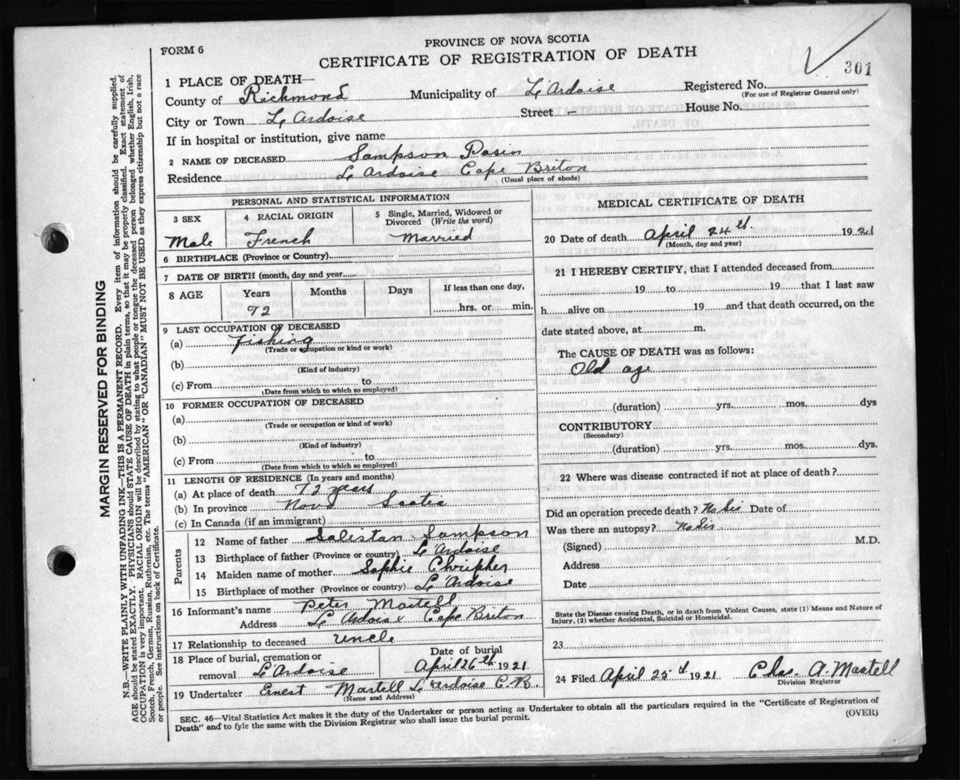 PROVINCE OF NOVA SCOTIA
FORM 6
CERTIFICATE OF REGISTRATION OF DEATH
301
1 PLACE OF DEATH—
County of Richmond Municipality of L'Ardoise Registered No.
(For use of Registrar General only)
City or Town L Ardoise Street — House No.
If in hospital or institution, give name
2 NAME OF DECEASED Sampson Rosin
Residence L Ardoise Cape Briton
(Usual place of abode)
PERSONAL AND STATISTICAL INFORMATION
3 SEX 4 RACIAL ORIGIN 5 Single, Married, Widowed or Divorced (Write the word)
Male French Married
6 BIRTHPLACE (Province or Country)
7 DATE OF BIRTH (month, day and year)
8 AGE Years Months Days If less than one day,
72 hrs. or min.
9 LAST OCCUPATION OF DECEASED
(a) Fishing
(Trade or occupation or kind or work)
(b)
(Kind of industry)
(c) From to
(Date from which to which so employed)
10 FORMER OCCUPATION OF DECEASED
(a)
(Trade or occupation or kind or work)
(b)
(Kind of industry)
(c) From to
(Date from which to which so employed)
11 LENGTH OF RESIDENCE (In years and months)
(a) At place of death 72 years
(b) In province Nova Scotia
(c) In Canada (if an immigrant)
Parents
12 Name of father Salistan Sampson
13 Birthplace of father (Province or country) L Ardoise
14 Maiden name of mother Sophie
15 Birthplace of mother (Province or country) L Ardoise
16 Informant's name Peter Martell
Address L Ardoise Cape Briton
17 Relationship to deceased Uncle
18 Place of burial, cremation or Date of burial
removal L'Ardoise April 26th 1921
19 Undertaker Ernest Martell L'Ardoise C.B.
(Name and Address)
MEDICAL CERTIFICATE OF DEATH
20 Date of death April 24th. 1921
(Month, day and year)
21 I HEREBY CERTIFY, that I attended deceased from
19 to 19 that I last saw
h alive on 19 and that death occurred, on the
date stated above, at m.
The CAUSE OF DEATH was as follows:
Old age
(duration) yrs. mos. dys
CONTRIBUTORY
(Secondary)
(duration) yrs. mos. dys.
22 Where was disease contracted if not at place of death?
Did an operation precede death? Date of
Was there an autopsy?
(Signed) M.D.
Address
Date
State the Disease causing Death, or in death from Violent Causes, state (1) Means and Nature of
Injury, (2) whether Accidental, Suicidal or Homicidal.
23
24 Filed April 25th 1921 Chas. A. Martell
Division Registrar
SEC. 46—Vital Statistics Act makes it the duty of the Undertaker or person acting as Undertaker to obtain all the particulars required in the "Certificate of Registration of
Death" and to fyle the same with the Division Registrar who shall issue the burial permit.
(OVER)
MARGIN RESERVED FOR BINDING
N.B.—WRITE PLAINLY WITH UNFADING INK—THIS IS A PERMANENT RECORD. Every item of information should be carefully supplied.
AGE should be stated EXACTLY. PHYSICIANS should STATE CAUSE OF DEATH in plain terms, so that it may be properly classified. Exact statement of
OCCUPATION is very important. RACIAL ORIGIN will be described by stating to what people or tongue the deceased person belonged whether English, Irish,
Scotch, French, German, Russian, Ruthenian, etc. The terms "AMERICAN" OR "CANADIAN" MUST NOT BE USED as they express citizenship but not a race
or people. See instructions on back of Certificate.